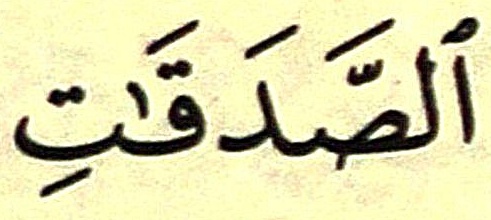 ٱلصَّدَقَٰتِ